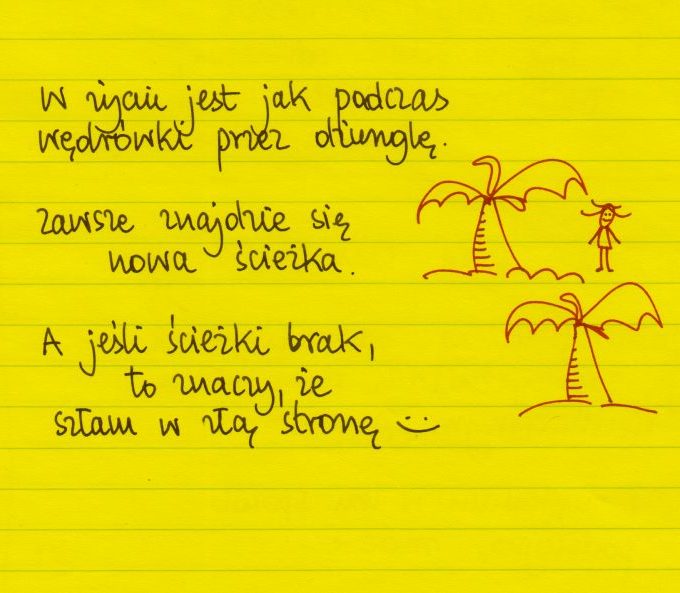 W życiu jest jak podczas
wędrówki przez dżunglę.
zawsze znajdzie się
nowa ścieżka.
A jeśli ścieżki brak,
to znaczy, że
szłam w złą stronę :)